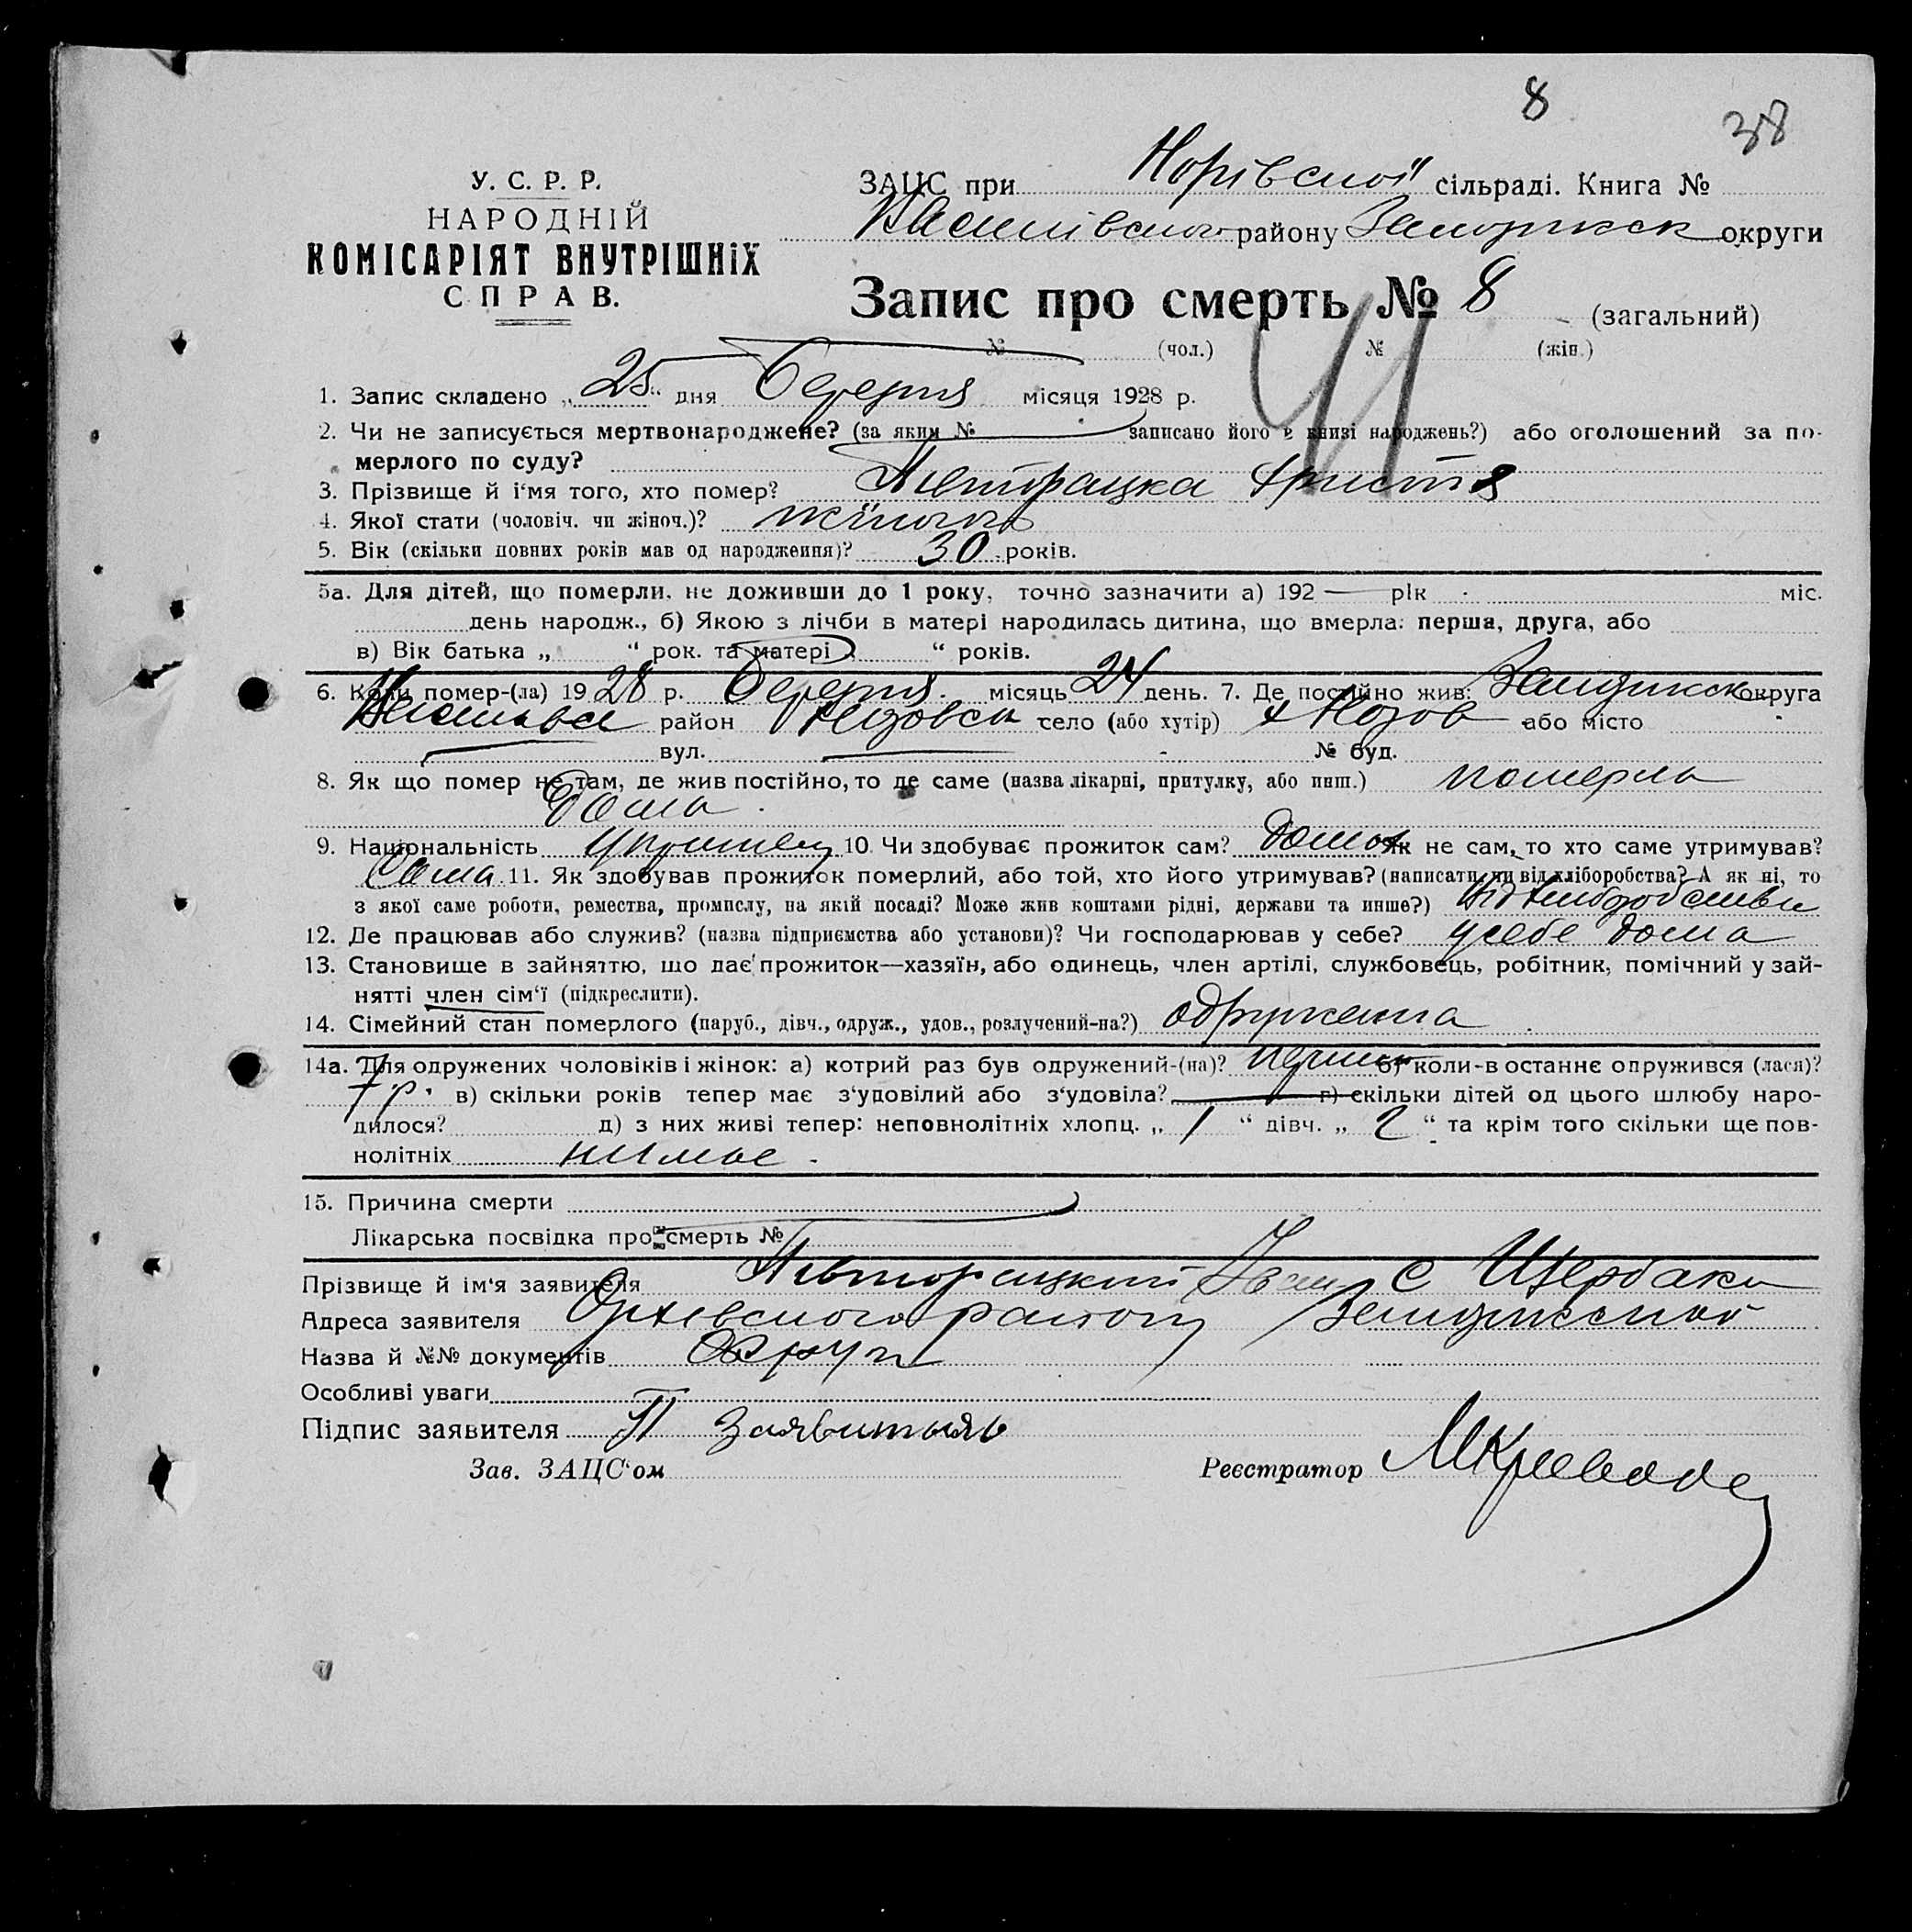 8
38
У. С. Р. Р.
НАРОДНІЙ
КОМІСАРІЯТ ВНУТРІШНІХ
СПРАВ.
ЗАЦС при сільраді. Книга №
району округи
Запис про смерть № 8 (загальний)
№ (чол.) № (жін.)
1. Запис складено „ 25 “ дня Березня місяця 1928 р.
2. Чи не записується мертвонароджене? (за яким № записано його в книзі народжень?) або оголошений за по-
мерлого по суду?
3. Прізвище й і‘мя того, хто помер? Христя
4. Якої стати (чоловіч. чи жіноч.)? жіночого
5. Вік (скільки повних років мав од народження)? 30 років.
5а. Для дітей, що померли, не доживши до 1 року, точно зазначити а) 192 — рік міс.
день народж., б) Якою з лічби в матері народилась дитина, що вмерла: перша, друга, або
в) Вік батька „ “ рок. та матері „ “ років.
6. Коли помер-(ла) 1928 р. Березня місяць 24 день. 7. Де постійно жив: округа
район село (або хутір) або місто
вул. № буд.
8. Як що помер не там, де жив постійно, то де саме (назва лікарні, притулку, або инш.) померла
дома
9. Національність 10. Чи здобуває прожиток сам? Як не сам, то хто саме утримував?
Сама 11. Як здобував прожиток померлий, або той, хто його утримував? (написати, чи від хліборобства? А як ні, то
з якої саме роботи, ремества, промислу, на якій посаді? Може жив коштами рідні, держави та инше?) Від хліборобства
12. Де працював або служив? (назва підприємства або установи)? Чи господарював у себе? у себе дома
13. Становище в зайняттю, що дає прожиток—хазяїн, або одинець, член артілі, службовець, робітник, помічний у зай-
нятті член сім‘ї (підкреслити).
14. Сімейний стан померлого (паруб., дівч., одруж., удов., розлучений-на?) одружена
14а. Для одружених чоловіків і жінок: а) котрий раз був одружений-(на)? перший б) коли-в останнє одружився (лася)?
7 р. в) скільки років тепер має з‘удовілий або з‘удовіла? г) скільки дітей од цього шлюбу наро-
дилося? д) з них живі тепер: неповнолітніх хлопц. „ 1 “ дівч. „ 2 “ та крім того скільки ще пов-
нолітніх нимає
15. Причина смерти
Лікарська посвідка про смерть №
Прізвище й ім‘я заявителя Іван С Щербаки
Адреса заявителя району
Назва й №№ документів Округи
Особливі уваги
Підпис заявителя П заявитыль
Зав. ЗАЦС‘ом Реєстратор